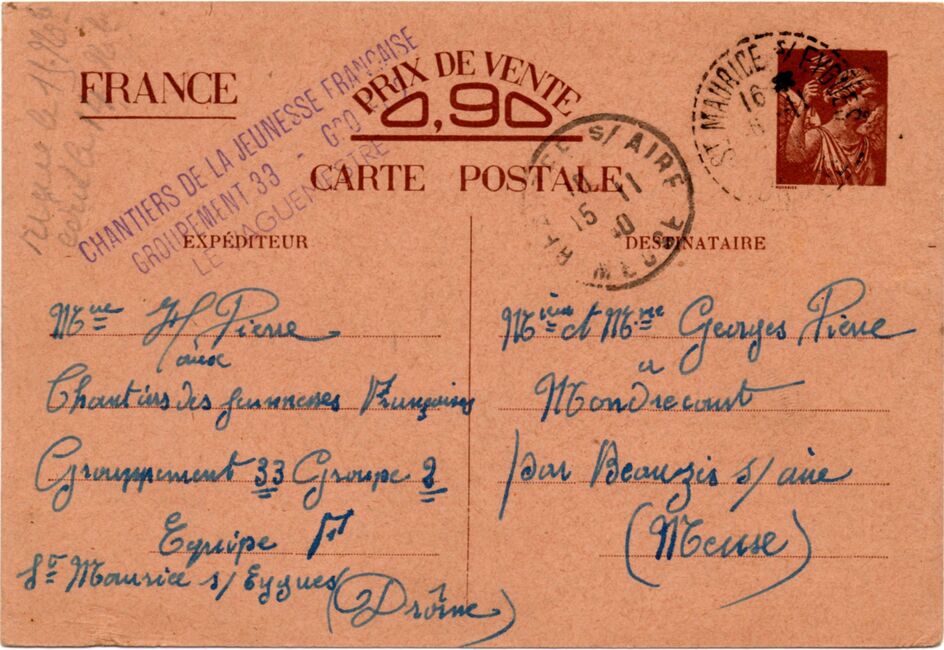 reçue le
FRANCE
PRIX DE VENTE
0,90
CARTE POSTALE
CHANTIERS DE LA JEUNESSE FRANÇAISE
GROUPEMENT 33 -
LE
ST MAURICE S/ EYGUES
16
S/ AIRE
15 - 11
40
MEUSE
EXPÉDITEUR
Pierre
aux
Chantiers des Jeunesses Françaises
Grouppement 33 Groupe 2
Equipe
St Maurice s/Eygues
(Drôme)
DESTINATAIRE
Mr et Mme Georges Pierre
a
Mondrecourt
par Beauzée s/ aire
(Meuse)